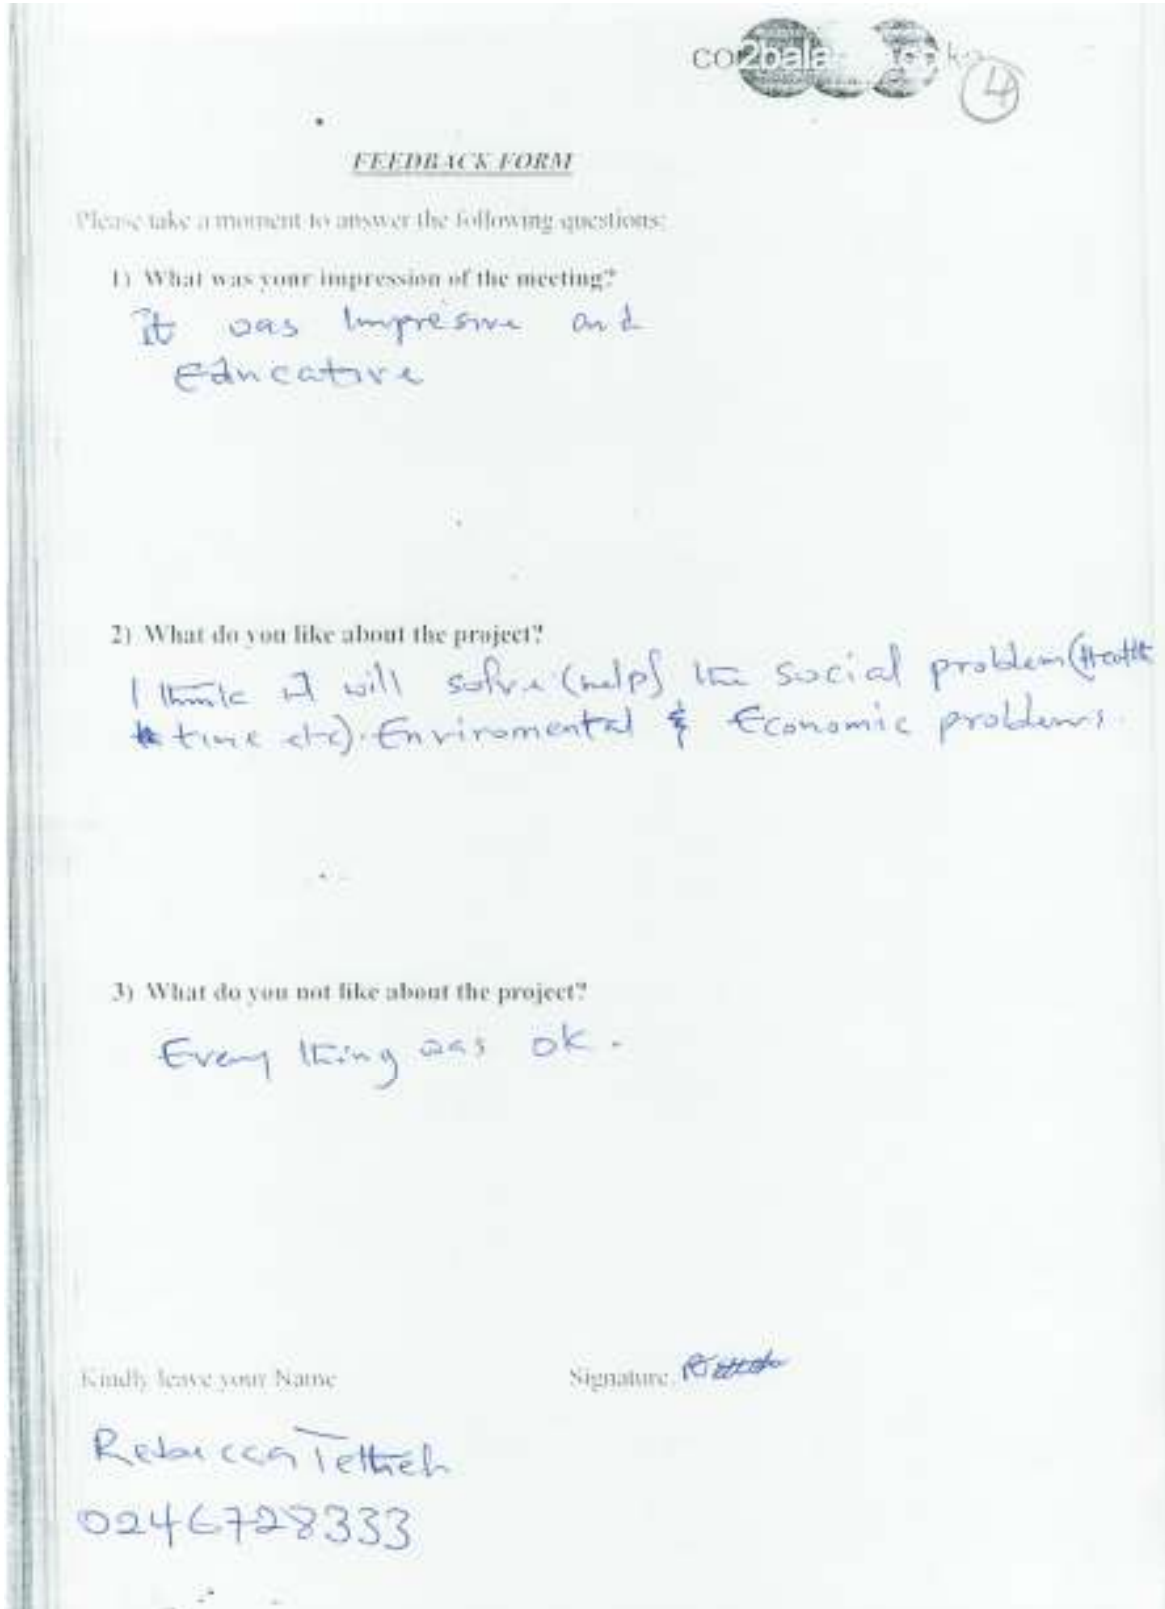 co2bala
4
FEEDBACK FORM
Please take a moment to answer the following questions:
1) What was your impression of the meeting?
It was Impresive and
Educative
2) What do you like about the project?
I think it will solve (help) the social problem (Health
time etc). Enviromental & Economic problems.
3) What do you not like about the project?
Every thing was ok.
Kindly leave your Name
Signature
Rebecca Tetteh
0246728333